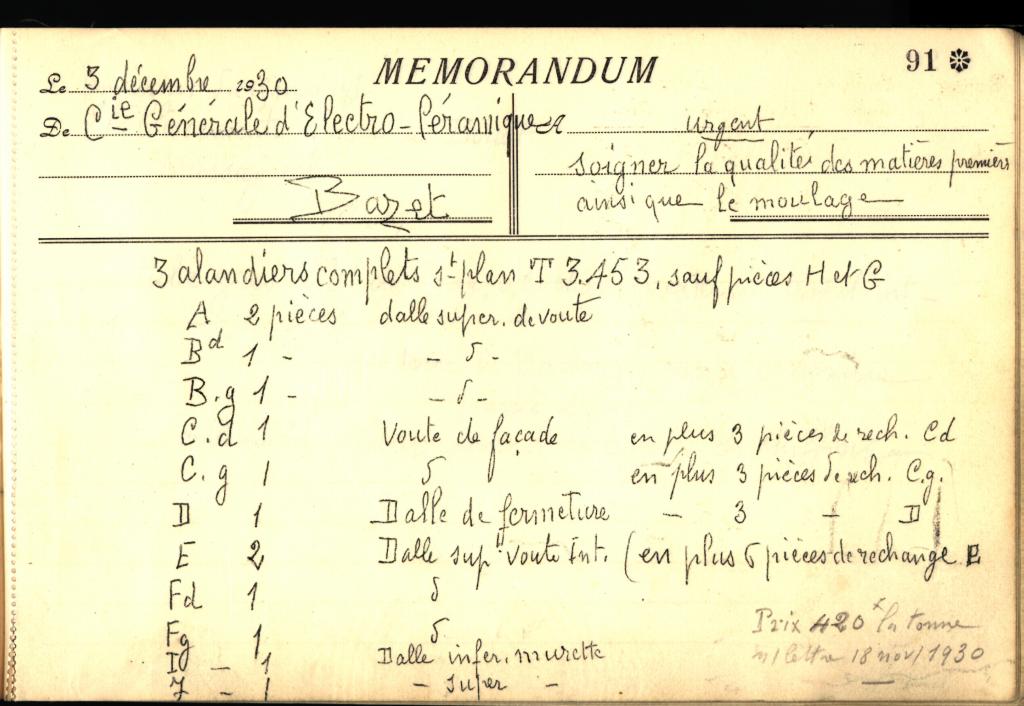 MEMORANDUM
91
Le 3 décembre 1930
De Cie Générale d'Electro-Céramique
urgent
soigner la qualité des matières premières
Bazet
ainsi que le moulage
3 alandiers complets st plan T 3.453, sauf pièces H et G
A 2 pièces dalle super. de voute
Bd 1 - - δ -
B.g 1 - - δ -
C.d 1 Voute de façade en plus 3 pièces de rech. Cd
C.g 1 δ en plus 3 pièces de rech. C.g.
D 1 Dalle de fermeture - 3 - D
E 2 Dalle sup. voute Int. (en plus 6 pièces de rechange E
Fd 1 δ
Fg 1 δ
I - 1 Dalle infer. murette
J - 1 - super -
Prix 420 x la tonne
m/ lettre 18 nov/ 1930